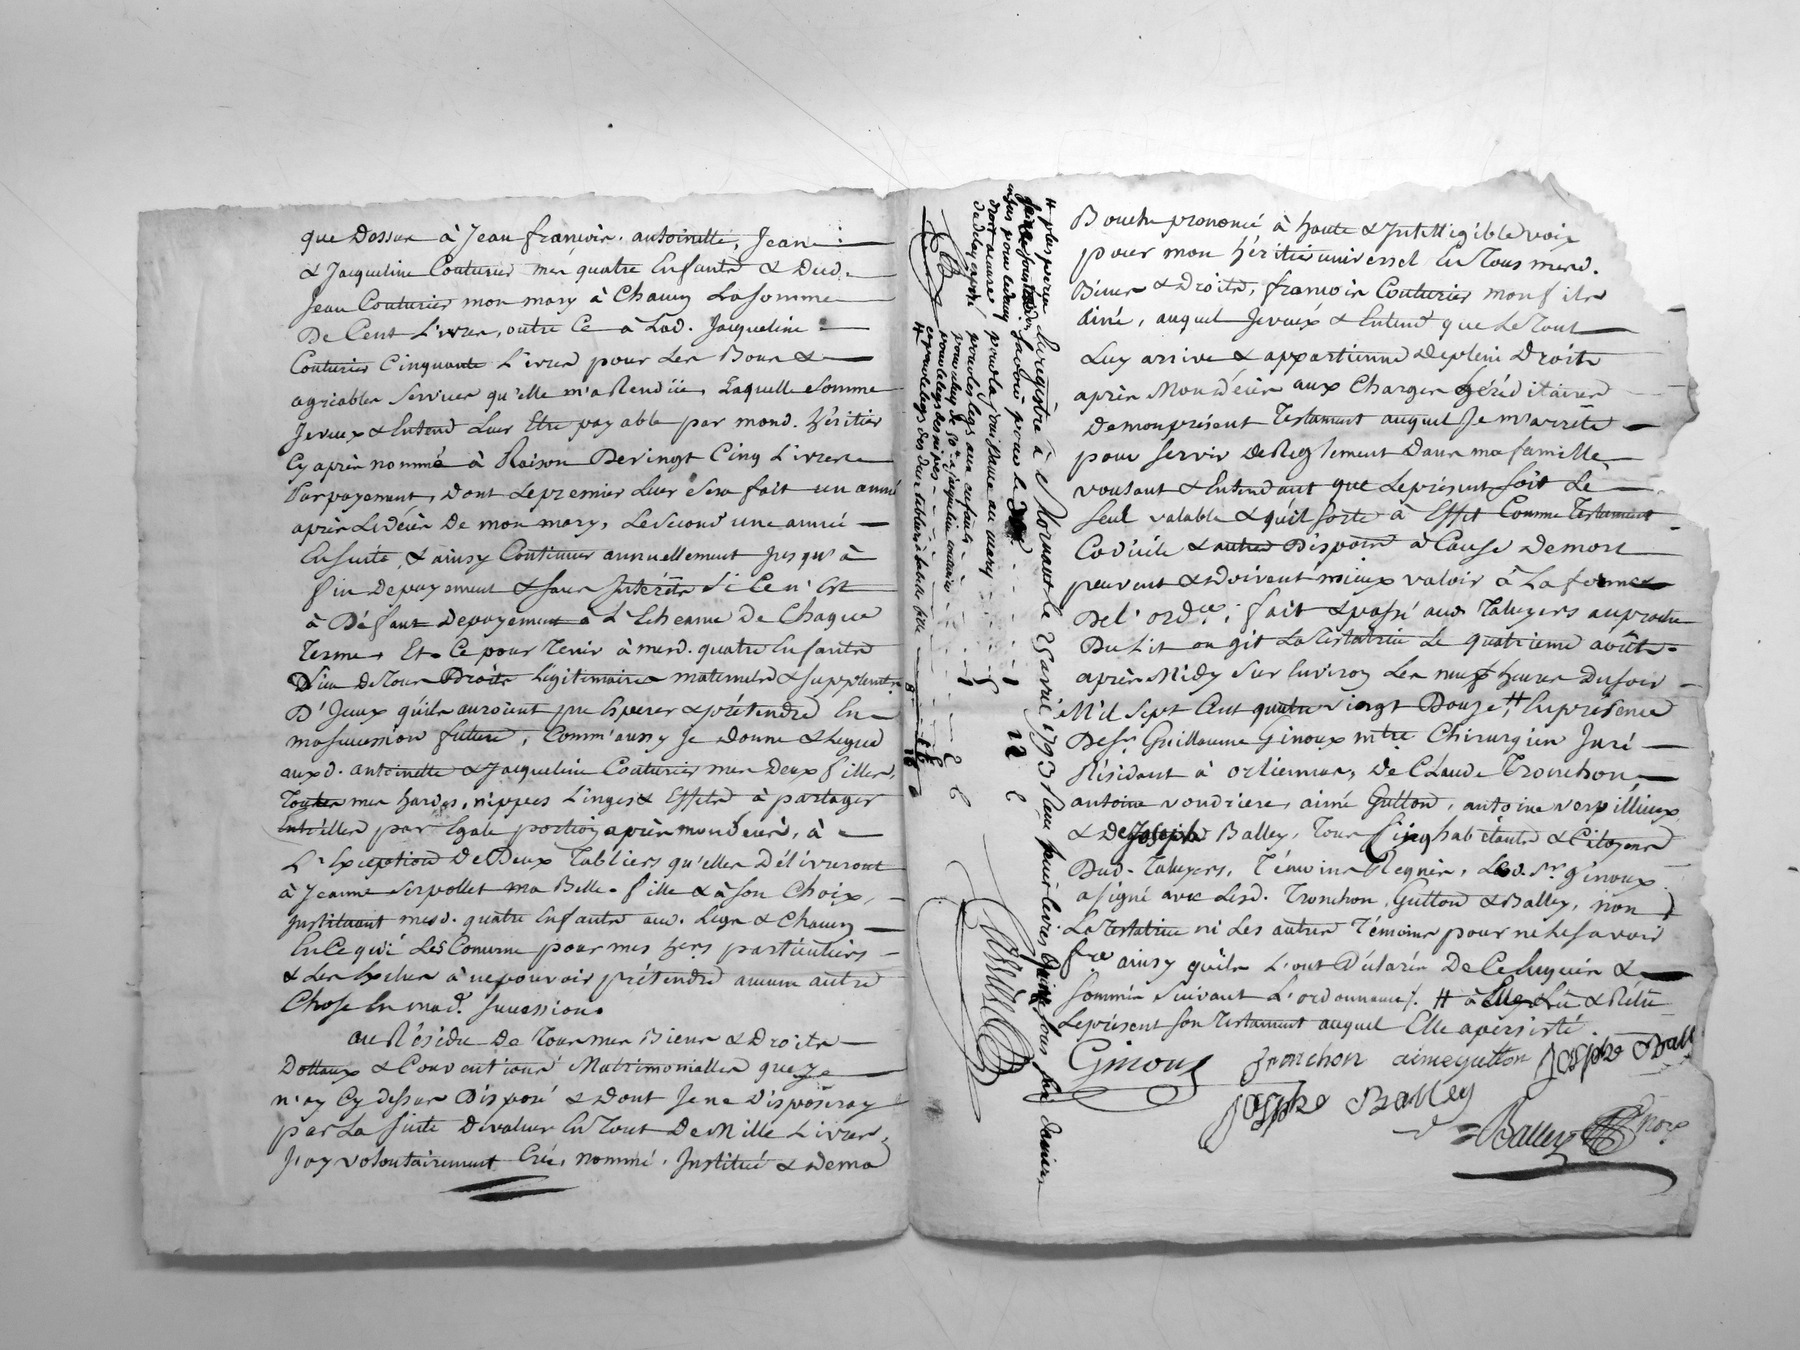 que Dessus à Jean françois, antoinette, Jean
& Jacqueline Couturier mes quatre Enfants & Dud.
Jean Couturier mon mary à Chacun La somme
De Cent Livres, outre Ce à Lad. Jacqueline
Couturier Cinquante Livres pour Les Bons &
agréables Services qu'elle m'a Rendüe, Laquelle Somme
Je veux & Entend Leur Etre payable par mond. héritier
Cy après nommé à Raison De vingt Cinq Livres
Par payement, dont Le premier Leur Sera fait un année
après Le déces De mon mary, Le Second une année
Ensuite, & ainsy Continuer annuellement jusqu'à
fin De payement & sans Intérêts Si Ce n'est
à Défaut De payement à L'Echeance De Chaque
Terme, Et Ce pour Tenir à mesd. quatre Enfants
Lieu De Tous Droits Légitimaires maternels & supplements
D'Iceux qu'ils auroient pu Esperer & prétendre En
ma succession future, Comm'aussy Je Donne & Legue
auxd. antoinette & Jacqueline Couturier mes Deux filles,
Toutes mes hardes, nippes Linges & Effets à partager
Entr'elles par Egale portion après mon déces, à
L'Exception De Deux Tabliers qu'elles Délivreront
à Jeanne Servollet ma Belle-fille & à Son Choix,
Instituant mesd. quatre Enfants aud. Legs & Chacun
En Ce qui Les Concerne pour mes hers particuliers
& Les Exclus à ne pouvoir prétendre aucune autre
Chose En mad. succession.
au Résidu De Tous mes Biens & Droits
Dottaux & Conventions Matrimonialles que Je
n'ay Cy dessus Disposé & Dont Je ne Disposeray
par La suite De valeur En Tout De Mille Livres,
J'ay volontairement Créé, nommé, Institué & De ma
Enregistré à Mornant le 25 avril 1793 Reçu
Savoir pour le
pour la Jouissance au mary
pour les legs aux enfants
Bouche prononcé à haute & Intelligible voix
pour mon héritier universel En Tous mesd.
Biens & Droits, françois Couturier mon fils
ainé, auquel Je veux & Entend que Le Tout
Luy arrive & appartienne De plein Droits
après Mon déces aux Charges héréditaires
De mon présent Testament auquel Je m'arrête
pour servir De Reglement Dans ma famille,
voulant & Entendant que Le présent soit Le
Seul valable & qu'il sorte à Effet Comme Testament
Codicile & autres Disposons à Cause De mort
peuvent & Doivent mieux valoir à La forme
De L'ordce; fait & passé aud. Taluyers auprès
Du Lit ou git La Testatrice Le quatrieme août
après Midy Sur Environ Les neuf heures Du soir
Mil Sept Cent quatre vingt Douze, # En présence
De Sr Guillaume Ginoux mtre Chirurgien Juré
Résidant à orlienas, De Claude Tronchon
antoine voudriere, aimé Gutton, antoine verpillieux
& De Joseph Balley, Tous Cinq habitants & Citoyens
Dud. Taluyers, Témoins Requis, Led. Sr ginoux
a signé avec Lesd. Tronchon, Gutton & Balley, non
La Testatrice ni Les autres Témoins pour ne Le savoir
fre ainsy qu'ils L'ont Déclarés De Ce Enquis &
Sommés Suivant L'ordonnance /. # à Elle Lu & Rélu
Le présent son Testament auquel Elle a persisté
Ginoux Tronchon aimegutton Josphe Ball
Josphe Balley
Balley